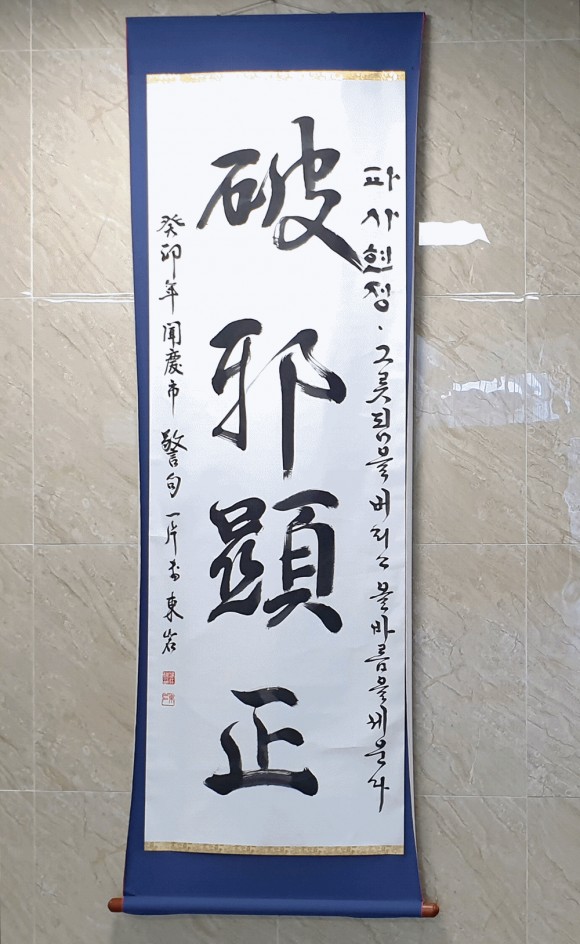 파사현정 · 그릇됨을 버리고 올바름을 세운다
破邪顯正
癸卯年 聞慶市 警句 一片 書 東岩